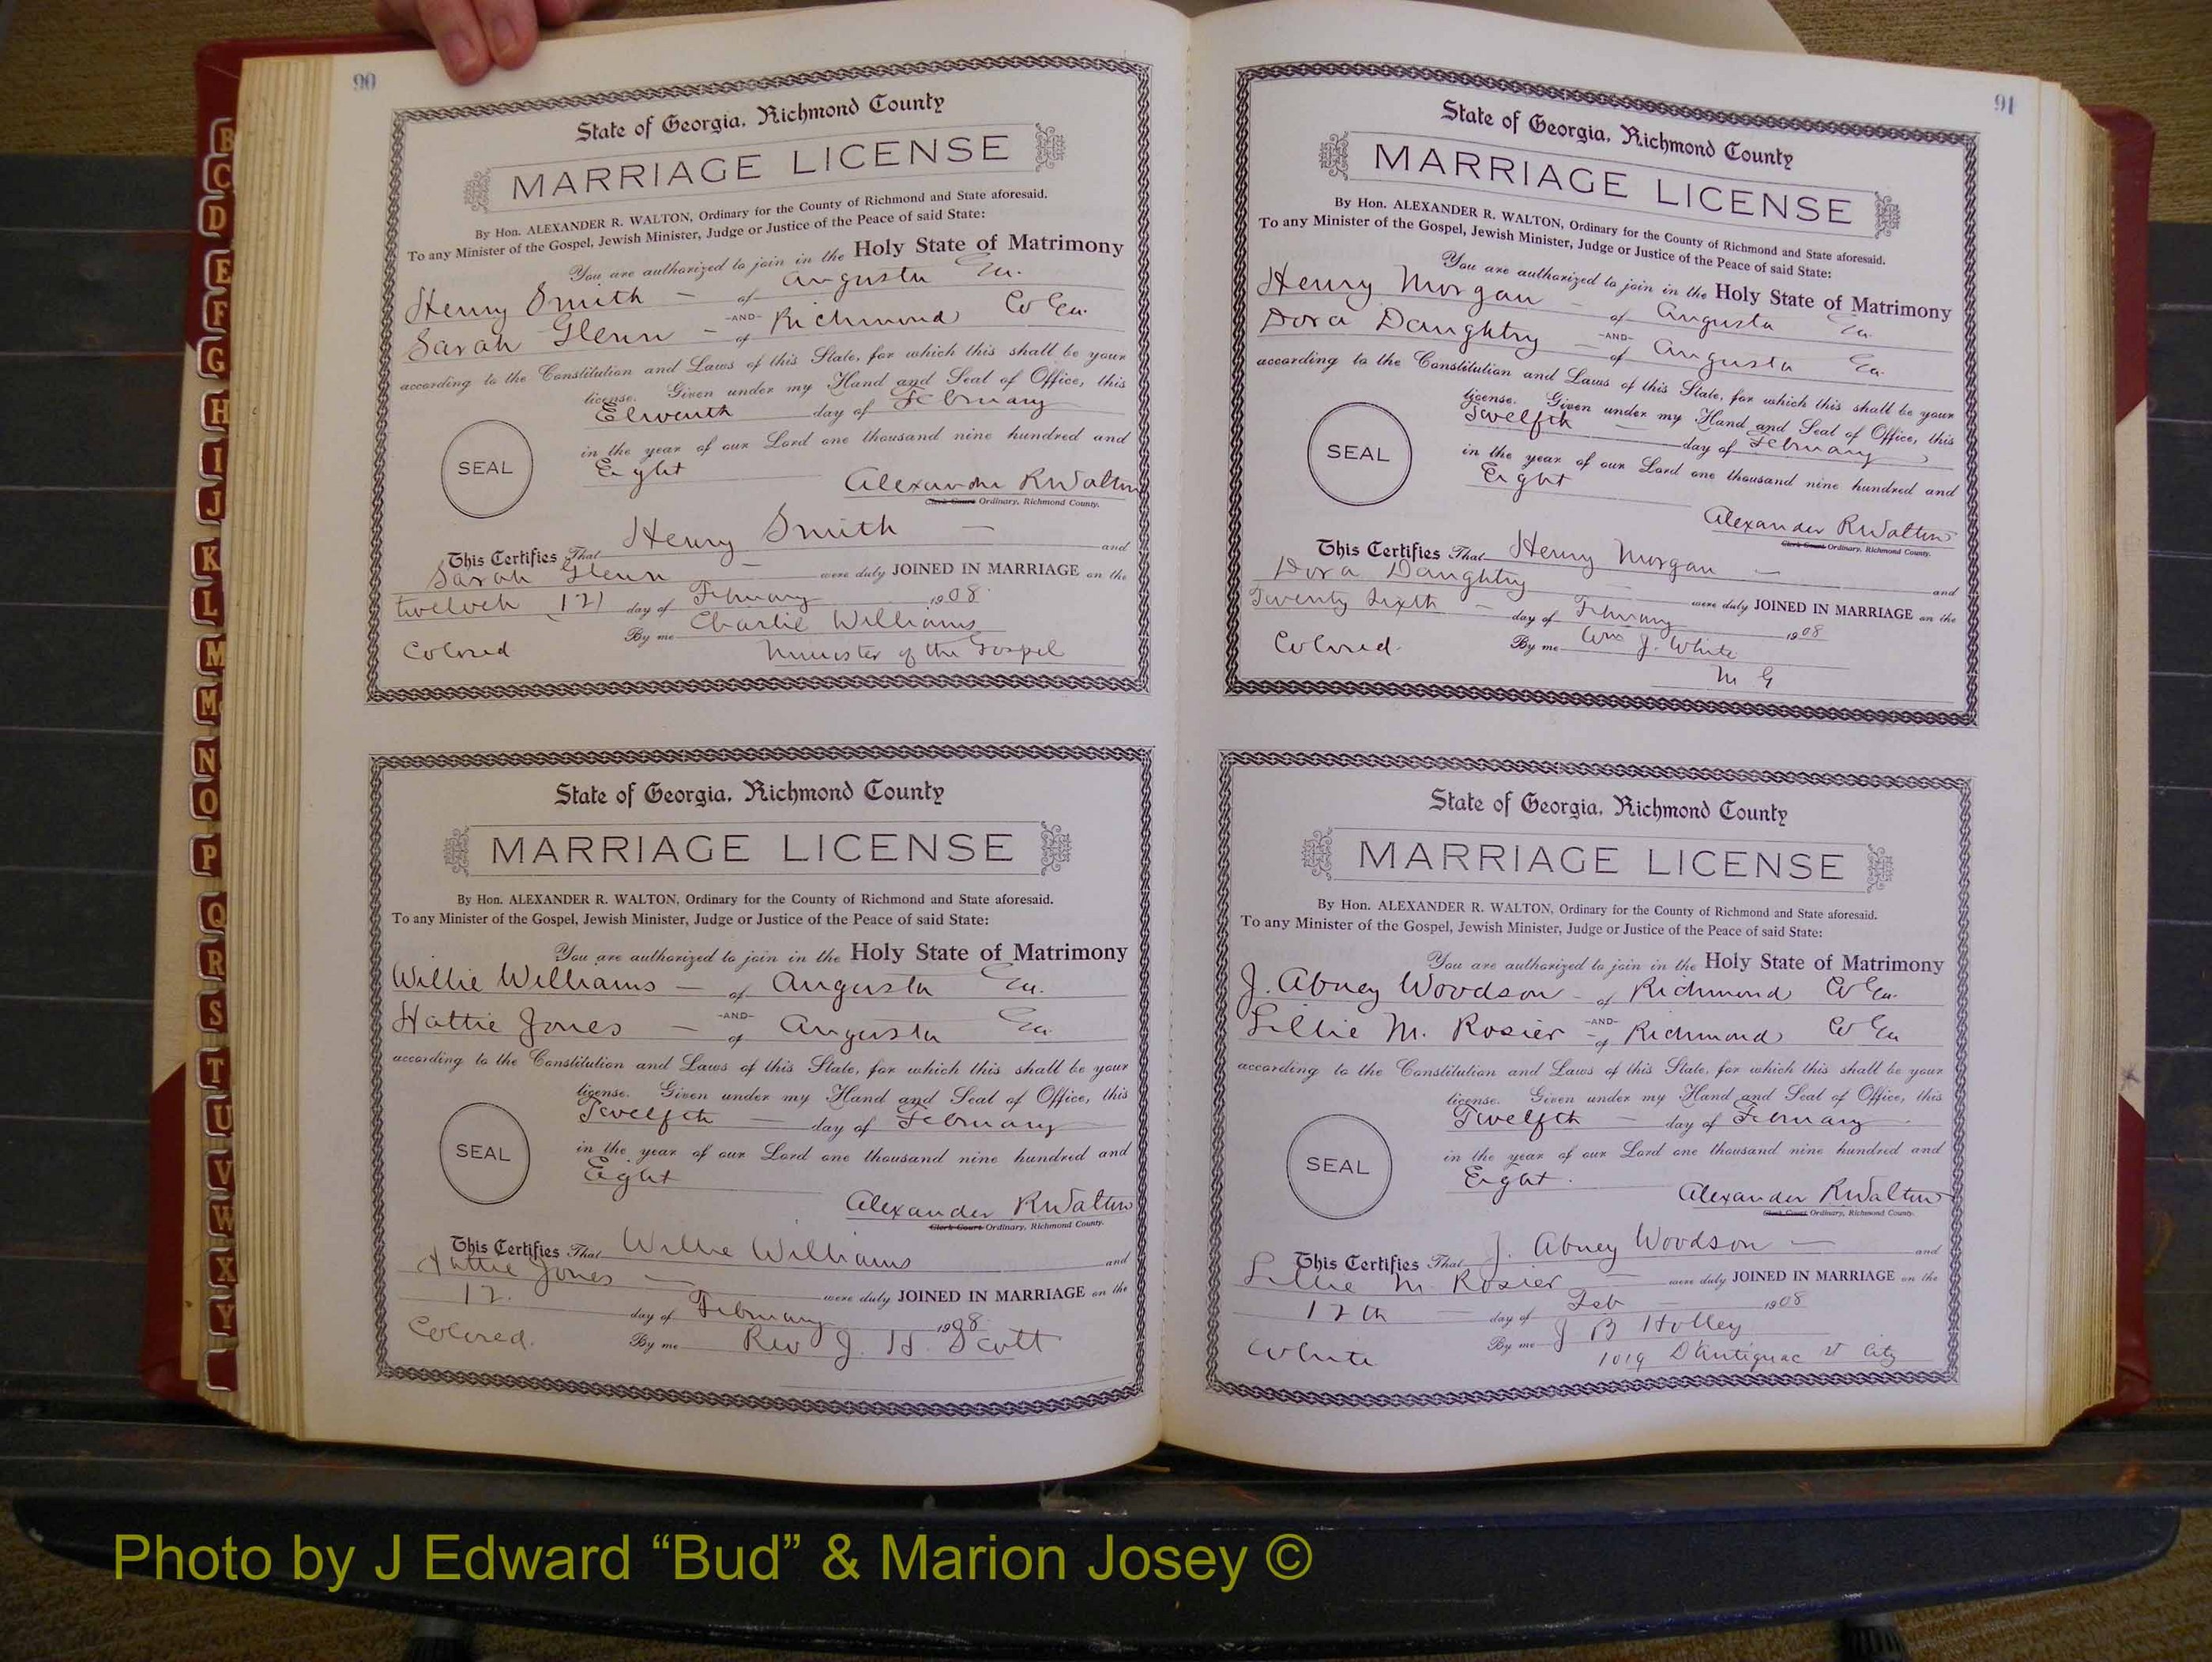 90
State of Georgia, Richmond County
MARRIAGE LICENSE
By Hon. ALEXANDER R. WALTON, Ordinary for the County of Richmond and State aforesaid.
To any Minister of the Gospel, Jewish Minister, Judge or Justice of the Peace of said State:
You are authorized to join in the Holy State of Matrimony
Henry Smith — of Augusta Ga.
-AND-
Sarah Glenn — of Richmond Co Ga.
according to the Constitution and Laws of this State, for which this shall be your
license. Given under my Hand and Seal of Office, this
Eleventh day of February
in the year of our Lord one thousand nine hundred and
SEAL
Eight
Alexander R Walton
Clerk Court Ordinary, Richmond County.
This Certifies That Henry Smith — and
Sarah Glenn — were duly JOINED IN MARRIAGE on the
twelveth (12) day of February 1908.
By me Charlie Williams
Colored Minister of the Gospel
State of Georgia, Richmond County
MARRIAGE LICENSE
By Hon. ALEXANDER R. WALTON, Ordinary for the County of Richmond and State aforesaid.
To any Minister of the Gospel, Jewish Minister, Judge or Justice of the Peace of said State:
You are authorized to join in the Holy State of Matrimony
Willie Williams — of Augusta Ga.
-AND-
Hattie Jones — of Augusta Ga.
according to the Constitution and Laws of this State, for which this shall be your
license. Given under my Hand and Seal of Office, this
Twelfth — day of February
in the year of our Lord one thousand nine hundred and
SEAL
Eight
Alexander R Walton
Clerk Court Ordinary, Richmond County.
This Certifies That Willie Williams and
Hattie Jones — were duly JOINED IN MARRIAGE on the
12. day of February 1908
Colored. By me Rev J. H. Scott
91
State of Georgia, Richmond County
MARRIAGE LICENSE
By Hon. ALEXANDER R. WALTON, Ordinary for the County of Richmond and State aforesaid.
To any Minister of the Gospel, Jewish Minister, Judge or Justice of the Peace of said State:
You are authorized to join in the Holy State of Matrimony
Henry Morgan — of Augusta Ga.
-AND-
Dora Daughtry — of Augusta Ga.
according to the Constitution and Laws of this State, for which this shall be your
license. Given under my Hand and Seal of Office, this
Twelfth — day of February
in the year of our Lord one thousand nine hundred and
SEAL
Eight
Alexander R Walton
Clerk Court Ordinary, Richmond County.
This Certifies That Henry Morgan — and
Dora Daughtry were duly JOINED IN MARRIAGE on the
Twenty Sixth — day of February 1908
Colored. By me Wm J. White
M G
State of Georgia, Richmond County
MARRIAGE LICENSE
By Hon. ALEXANDER R. WALTON, Ordinary for the County of Richmond and State aforesaid.
To any Minister of the Gospel, Jewish Minister, Judge or Justice of the Peace of said State:
You are authorized to join in the Holy State of Matrimony
J. Abney Woodson — of Richmond Co Ga.
-AND-
Lillie M. Rosier — of Richmond Co Ga
according to the Constitution and Laws of this State, for which this shall be your
license. Given under my Hand and Seal of Office, this
Twelfth — day of February
in the year of our Lord one thousand nine hundred and
SEAL
Eight.
Alexander R Walton
Clerk Court Ordinary, Richmond County.
This Certifies That J. Abney Woodson — and
Lillie M. Rosier — were duly JOINED IN MARRIAGE on the
12th — day of Feb 1908
By me J B Holley
White 1019 D'Antignac St City
B
C
D
E
F
G
H
I
J
K
L
M
M
N
O
P
Q
R
S
T
U
V
W
X
Y
Photo by J Edward “Bud” & Marion Josey ©